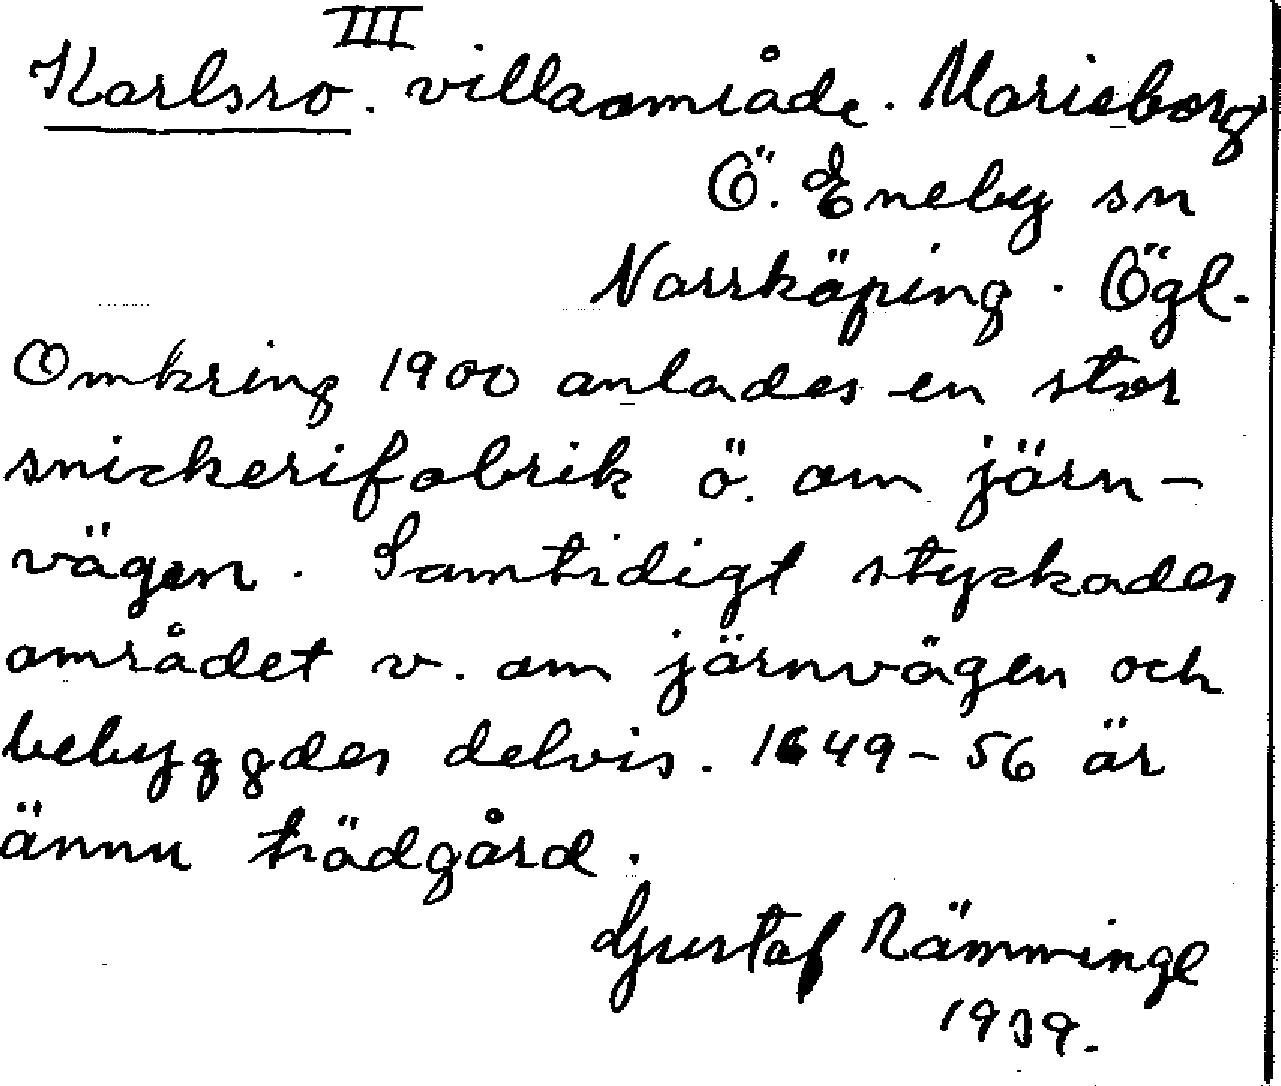 III
Karlsro. villaområde. Marieborg
Ö. Eneby sn
Norrköping. Ögl.
Omkring 1900 anlades en stor
snickerifabrik ö. om järn-
vägen. Samtidigt styckades
området v. om järnvägen och
bebyggdes delvis. 1649-56 är
ännu trädgård.
Gustaf Rämmingl
1939.